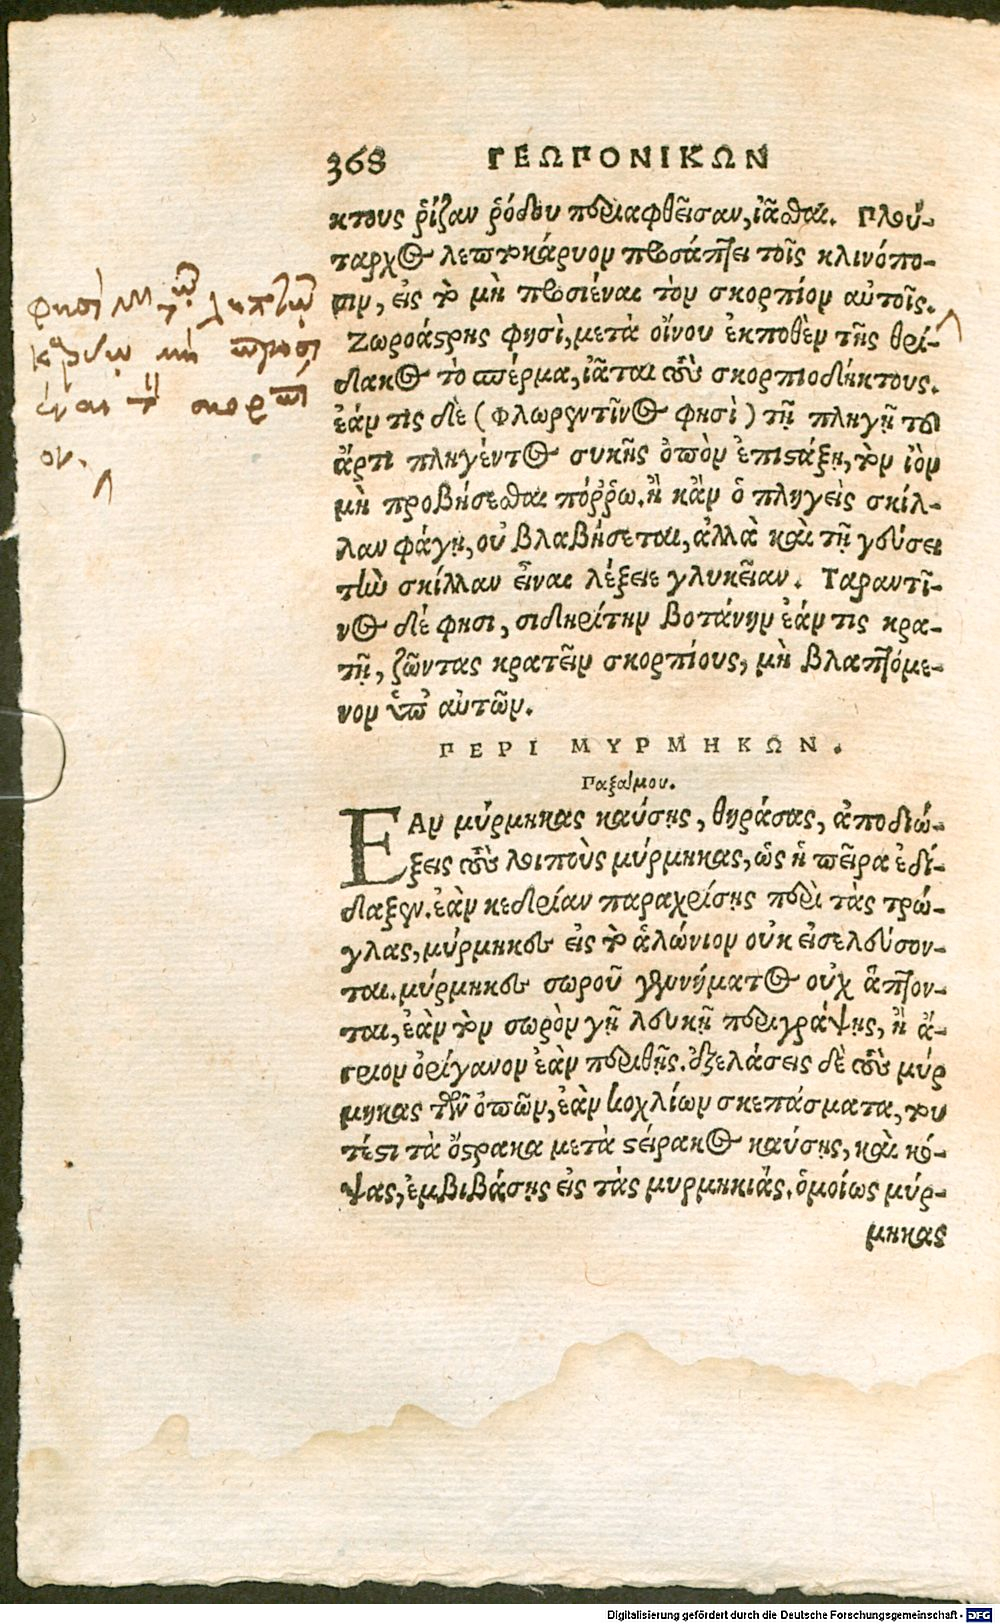 368 ΓΕΩΠΟΝΙΚΩΝ
κτους ῥίζαν ῥόδου περιαφθεῖσαν, ἰᾶσθαι. Πλού-
ταρχος λεπτοκάρυον προσάπτει τοῖς κλινόπο-
σιν, εἰς τὸ μὴ προσιέναι τὸν σκορπίον αὐτοῖς.
Ζωροάστρης φησὶ, μετὰ οἴνου ἐκποθὲν τῆς θρί-
δακος τὸ σπέρμα, ἰᾶται τοὺς σκορπιοδήκτους.
ἐάν τις δὲ (Φλωρεντῖνος φησὶ) τῇ πληγῇ τοῦ
ἄρτι πληγέντος συκῆς ὀπὸν ἐπιστάξῃ, τὸν ἰὸν
μὴ προβήσεσθαι πόῤῥω. ἢ κἂν ὁ πληγεὶς σκίλ-
λαν φάγῃ, οὐ βλαβήσεται, ἀλλὰ καὶ τῇ γεύσει
τὴν σκίλλαν εἶναι λέξειε γλυκεῖαν. Ταραντῖ-
νος δέ φησι, σιδηρίτην βοτάνην ἐάν τις κρα-
τῇ, ζῶντας κρατεῖν σκορπίους, μὴ βλαπτόμε-
νον ὑπ' αὐτῶν.
ΠΕΡΙ ΜΥΡΜΗΚΩΝ.
Παξάμου.
ΕΑν μύρμηκας καύσῃς, θηράσας, ἀποδιώ-
ξεις τοὺς λοιποὺς μύρμηκας, ὡς ἡ πεῖρα ἐδί-
δαξεν. ἐὰν κεδρίαν παραχρίσῃς περὶ τὰς τρώ-
γλας, μύρμηκες εἰς τὸ ἁλώνιον οὐκ εἰσελεύσον-
ται. μύρμηκες σωροῦ γεννήματος οὐχ ἅπτον-
ται, ἐὰν τὸν σωρὸν γῇ λευκῇ περιγράψῃς, ἢ ἄ-
γριον ὀρίγανον ἐὰν περιθῇς. ἐξελάσεις δὲ τοὺς μύρ
μηκας τῶν ὀπῶν, ἐὰν κοχλίων σκεπάσματα, του
τέστι τὰ ὄστρακα μετὰ στύρακος καύσῃς, καὶ κό-
ψας, ἐμβιβάσῃς εἰς τὰς μυρμηκιάς. ὁμοίως μύρ-
μηκας
φησὶ τῷ λεπτῷ
καρύῳ μὴ προσι
έναι τὸν σκορπί
ον.
Digitalisierung gefördert durch die Deutsche Forschungsgemeinschaft - DFG